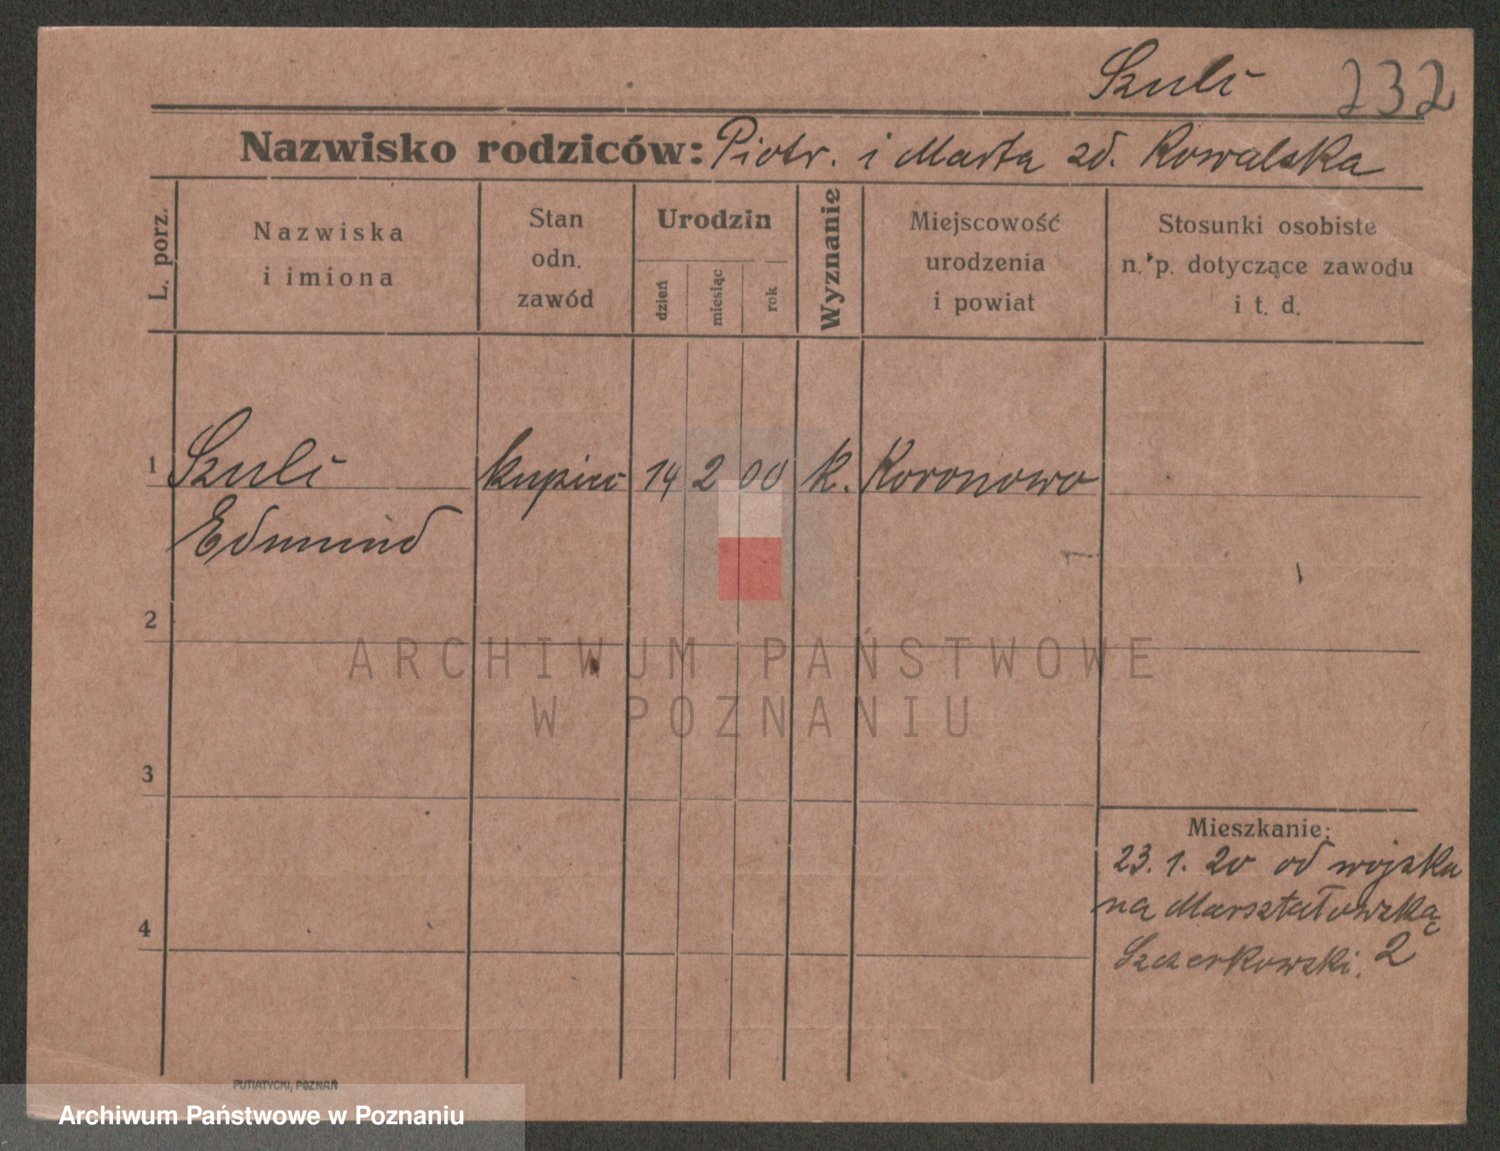 Szulc 232
Nazwisko rodziców: Piotr. i Marta zd. Kowalska
L. porz.
Nazwiska
i imiona
Stan
odn.
zawód
Urodzin
dzień
miesiąc
rok
Wyznanie
Miejscowość
urodzenia
i powiat
Stosunki osobiste
n. p. dotyczące zawodu
i t. d.
1 Szulc kupiec 14 2 00 k. Koronowo
Edmund
2
ARCHIWUM PAŃSTWOWE
W POZNANIU
3
Mieszkanie:
23. 1. 20 od wojska
na Marształowską
4
Szczerkowski. 2
PUTIATYCKI, POZNAŃ
Archiwum Państwowe w Poznaniu